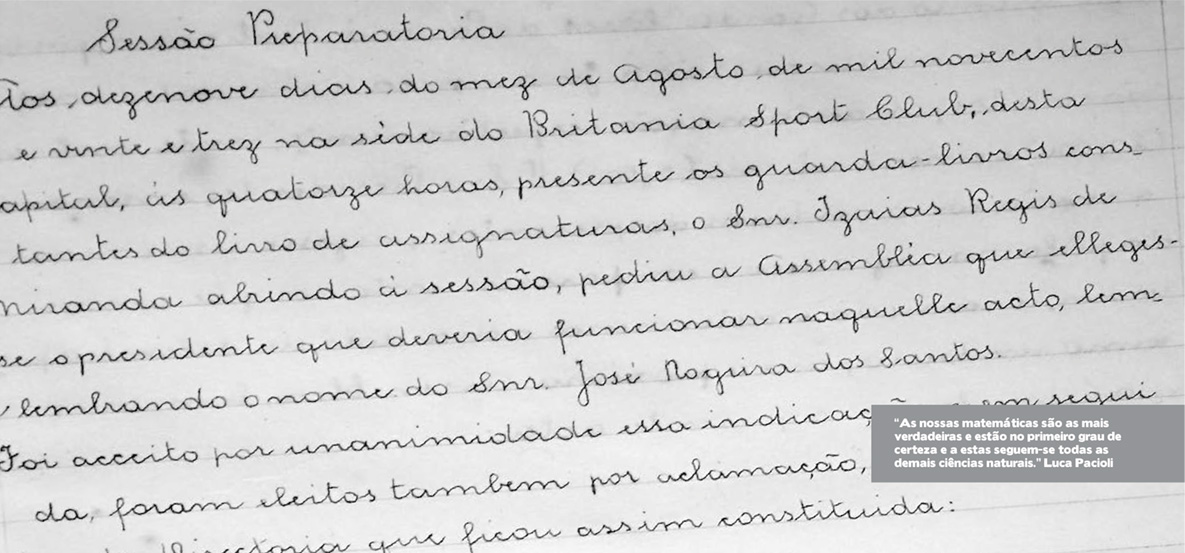 Sessão Preparatoria
Aos dezenove dias do mez de Agosto de mil novecentos
e vinte e trez na séde do Britania Sport Club, desta
apital, ás quatorze horas, presente os guarda-livros cons_
tantes do livro de assignaturas, o Snr. Izaias Regis de
Miranda abrindo á sessão, pediu a Assembléa que elleges-
se o presidente que deveria funcionar naquelle acto, lem_
lembrando o nome do Snr. José Nogueira dos Santos.
Foi acceito por unanimidade essa indicaçã em segui
da, foram eleitos tambem por aclamação,
Directoria que ficou assim constituida:
"As nossas matemáticas são as mais
verdadeiras e estão no primeiro grau de
certeza e a estas seguem-se todas as
demais ciências naturais." Luca Pacioli